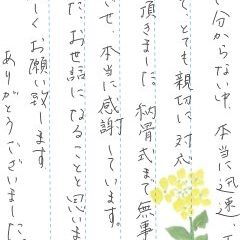 分からない中、本当に迅速
て、とても親切に対応
頂きました。納骨式まで無事
いせ、本当に感謝しています。
た、お世話になることと思いま
しくお願い致します
ありがとうございました。